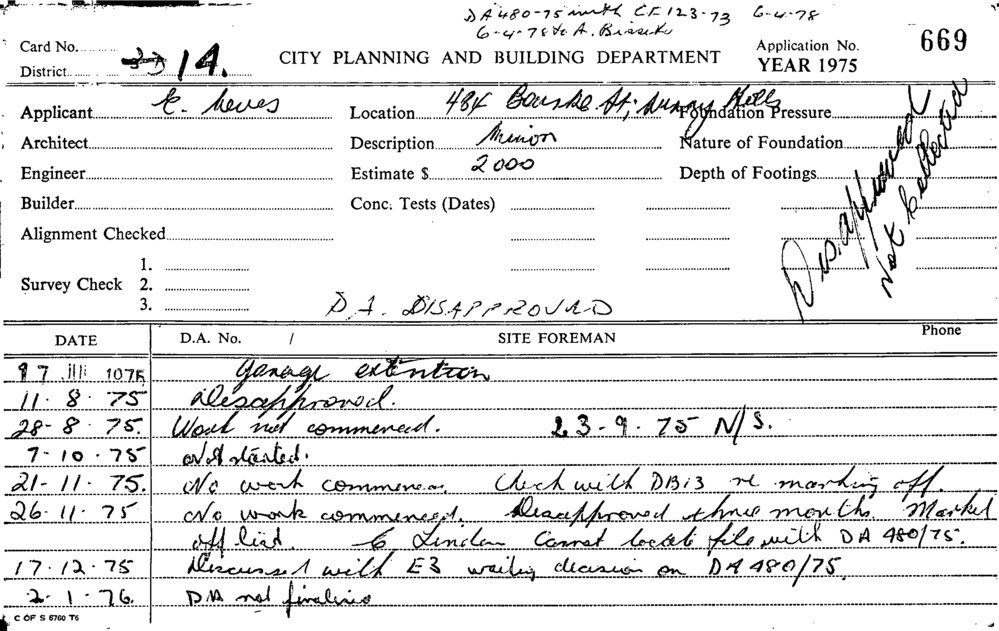 DA480-75 with CF123-73 6-4-78
6-4-78 to A.
Card No.
District 14.
CITY PLANNING AND BUILDING DEPARTMENT
Application No. 669
YEAR 1975
Applicant
Location 484 Bourke St; Surry Hills
Foundation Pressure
Architect
Description Minor
Nature of Foundation
Engineer
Estimate $ 2000
Depth of Footings
Builder
Conc. Tests (Dates)
Alignment Checked
Disapproved
Not Collected
Survey Check 1.
2.
3.
D.A. DISAPPROVED
DATE D.A. No. / SITE FOREMAN Phone
garage extention
11. 8. 75 Disapproved.
28-8. 75. Work not commenced. 23-9.75 N/S.
7-10.75 Not started.
21-11.75. No work commenced. Check with DBi3 re marking off.
26.11.75 No work commenced. Disapproved three months. Marked
off list. Cannot locate file with DA 480/75.
17.12.75 Discussed with E3 waiting decision on DA480/75.
2-1.76. DA not finalised
C OF S 6760 T6